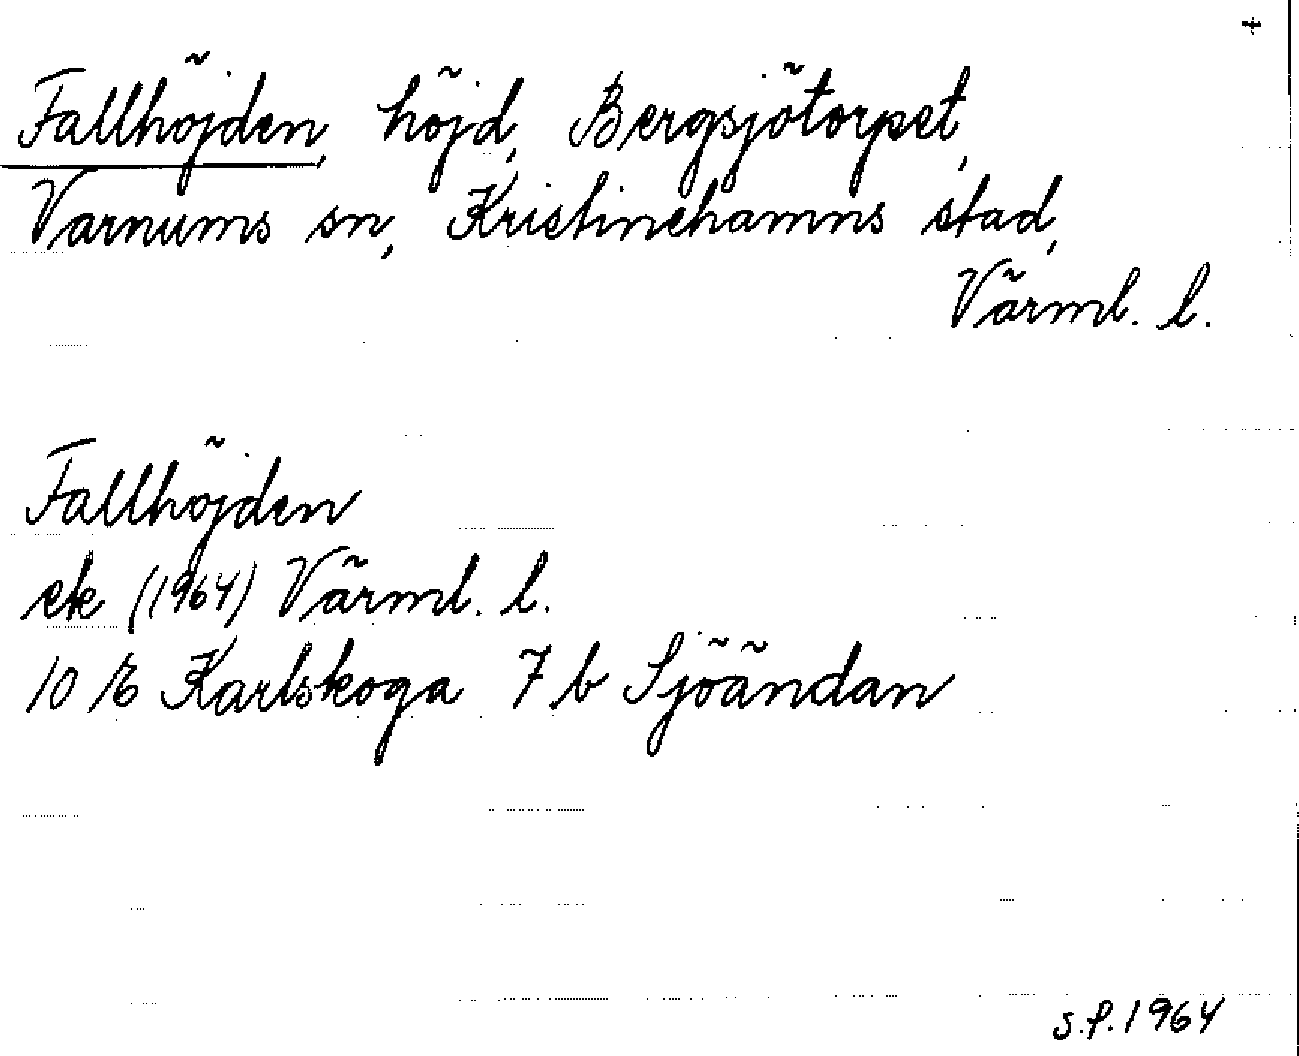 Fallhöjden, höjd, Bergsjötorpet,
Varnums sn, Kristinehamns stad,
Värml. l.
Fallhöjden
ek (1964) Värml. l.
10 E Karlskoga 7 b Sjöändan
S.P. 1964